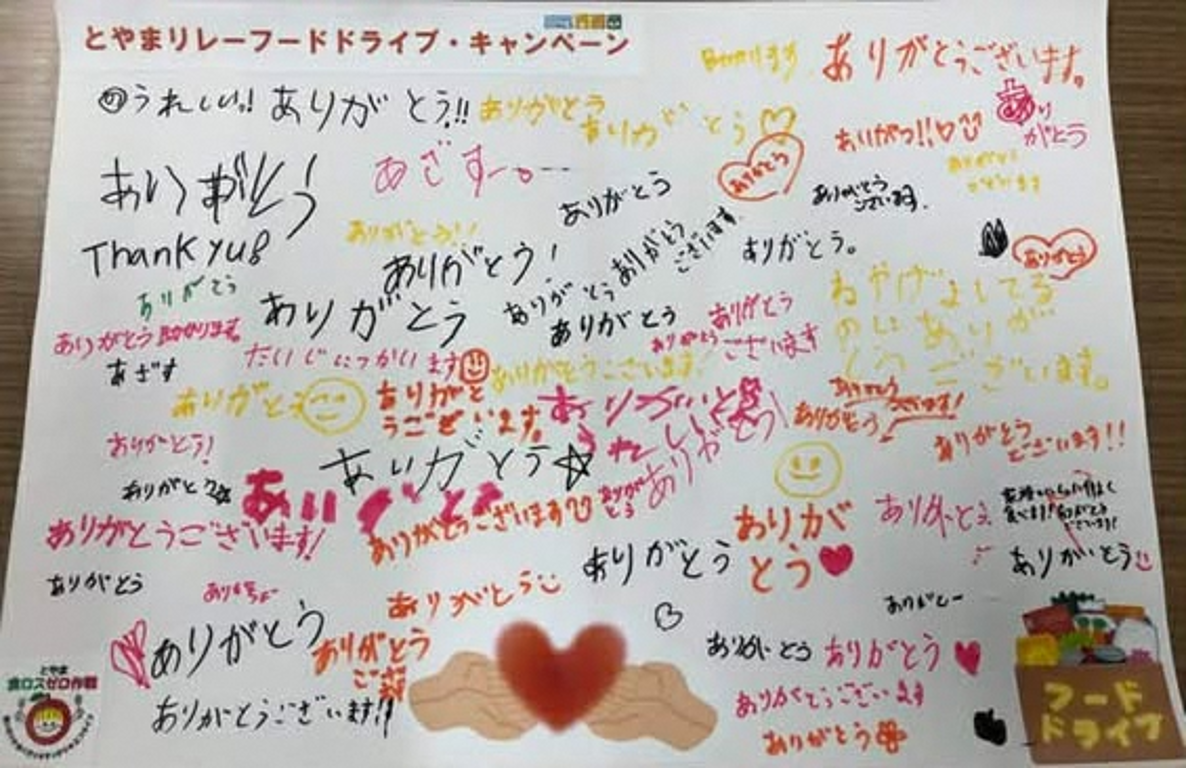 とやまリレーフードドライブ・キャンペーン
ありがとうございます。
うれしい!! ありがとう!!
ありがとう
ありがとう
ありがっ!!
がとう
ありがとう
ありがとう
あざすー
ありがとう
ありがとうございます。
ありがとう
Thank yu
ありがとう!!
ありがとう!
ありがとう
ございます
ありがとう。
ありがとう
ありがとう
ありがとう
ありがとう
ありがとう
ありがとう 助かります。
ありがとう
ありがとう
ございます
あざす
たいじにつかいます
ありがとうございます!
ありがと
ありがと
うございます。
ありがとう
ありがとう
ありがとう
ございます!!
ありがとう!
ありがとう
ありがとう
ありがとう
ありがとう
ありがとうございます!
ありがとうございます
ありが
とう
ありがとう
ありがとう
ありがとう
ありがとう
ありがとう
ありがとう
ありがとー
ありがとう
ありがとう
ありがとう
ありがとうございます!!
ありがとうございます
ありがとう
とやま
食ロスゼロ作戦
フード
ドライブ